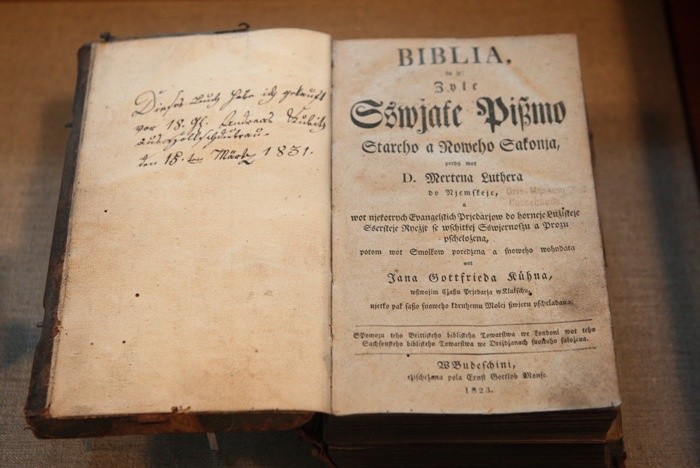 Dieses Buch habe ich gekauft
vor 18. gl. Andreas Kubitz
aus
den 15. ten März 1831.
BIBLIA,
to je:
Zyłe
Sswjate Pißmo
Stareho a Noweho Sakonja,
predy wot
D. Mertena Luthera
do Njemskeje,
a
wot njekotrych Evangelskich Prjedarjow do horneje Łužiskeje
Sserskeje Ryczje se wschitkej Sswjernosżu a Prozu
pscheložena,
potom wot Smolkow poredzena a snoweho wohndata
wot
Jana Gottfrieda Kühna,
wstwojim Cżaßu Prjedarja w Klukschu,
njetko pak saßo snoweho k druhemu Molej siwjeru pschehladana.
SPomozu teho Brittiskeho bibliskeho Towarstwa we Londoni wot teho
Sachsenskeho bibliskeho Towarstwa we Dreżdżanach snoweho saložena.
W Budeschini,
cżischcżana pola Ernst Gottlob Monse.
1823.